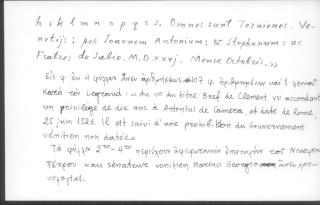 h i k l m n o p q r s. Omnes sunt Terniones. Ve-
netijs: per Ioannem Antonium: & Stephanum: ac
Fratres de Sabio. M.D.xxvj. Mense Octobris.»
Εἰς φ. ἐν 4 φύλλα ἄνευ ἀριθμήσεως 107 φ. ἀριθμημένα καὶ 1 λευκόν.
Κατὰ τὸν Legrand: «Au vo du titre Bref de Clement VII accordant
un privilège de dix ans à Antonius de Camera, et daté de Rome
25 juin 1526. Il est suivi d'une prohibition du Gouvernement
vénitien non datée.»
Τὰ φύλλα 2ον - 4ον περιέχουν ἀφιερωτικὴν ἐπιστολὴν τοῦ Νικολάου
Πέτρου «au sénateur vénitien Marino Georgio» ἄνευ χρο-
νολογίας.